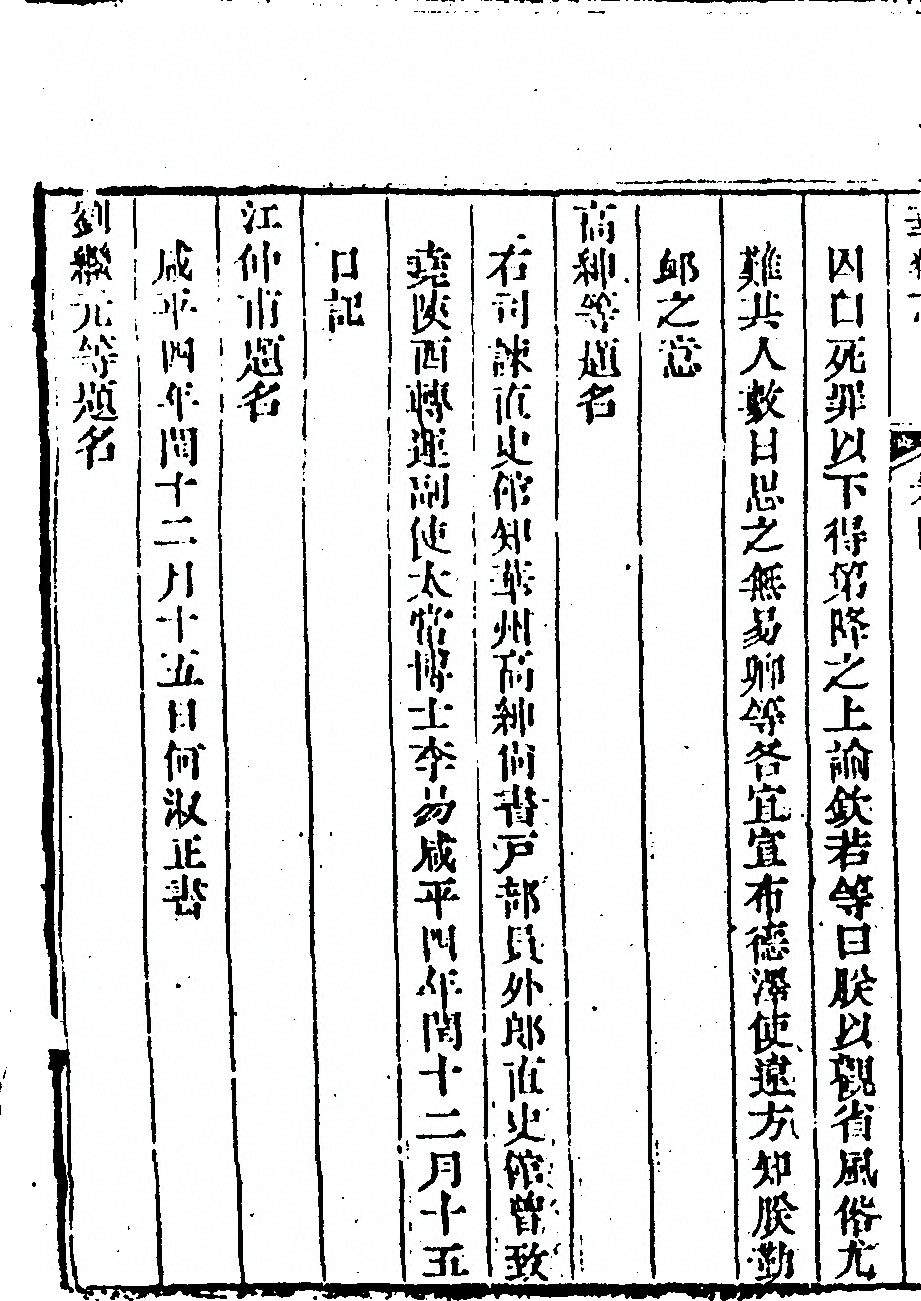 囚自死罪以下得第降之上諭欽若等曰朕以觀省風俗尤
難其人數日思之無易卿等各宜宣布德澤使遠方知朕勤
卹之意
高紳等題名
右司諫直史館知華州高紳尚書戶部員外郎直史館曾致
堯陝西轉運副使太常博士李易咸平四年閏十二月十五
日記
江仲甫題名
咸平四年閏十二月十五日何淑正書
劉繼元等題名